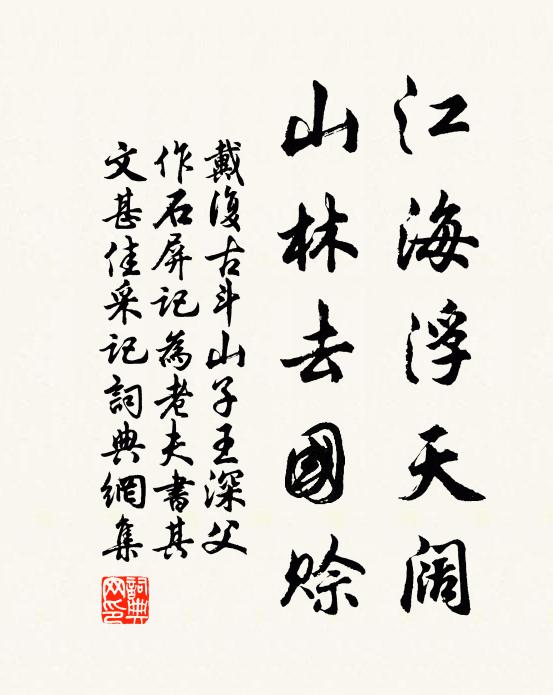 江海浮天闊
山林去國賒
戴復古斗山子王深父
作石屏記為老夫書其
文甚佳采記詞典網集
詞典
网印